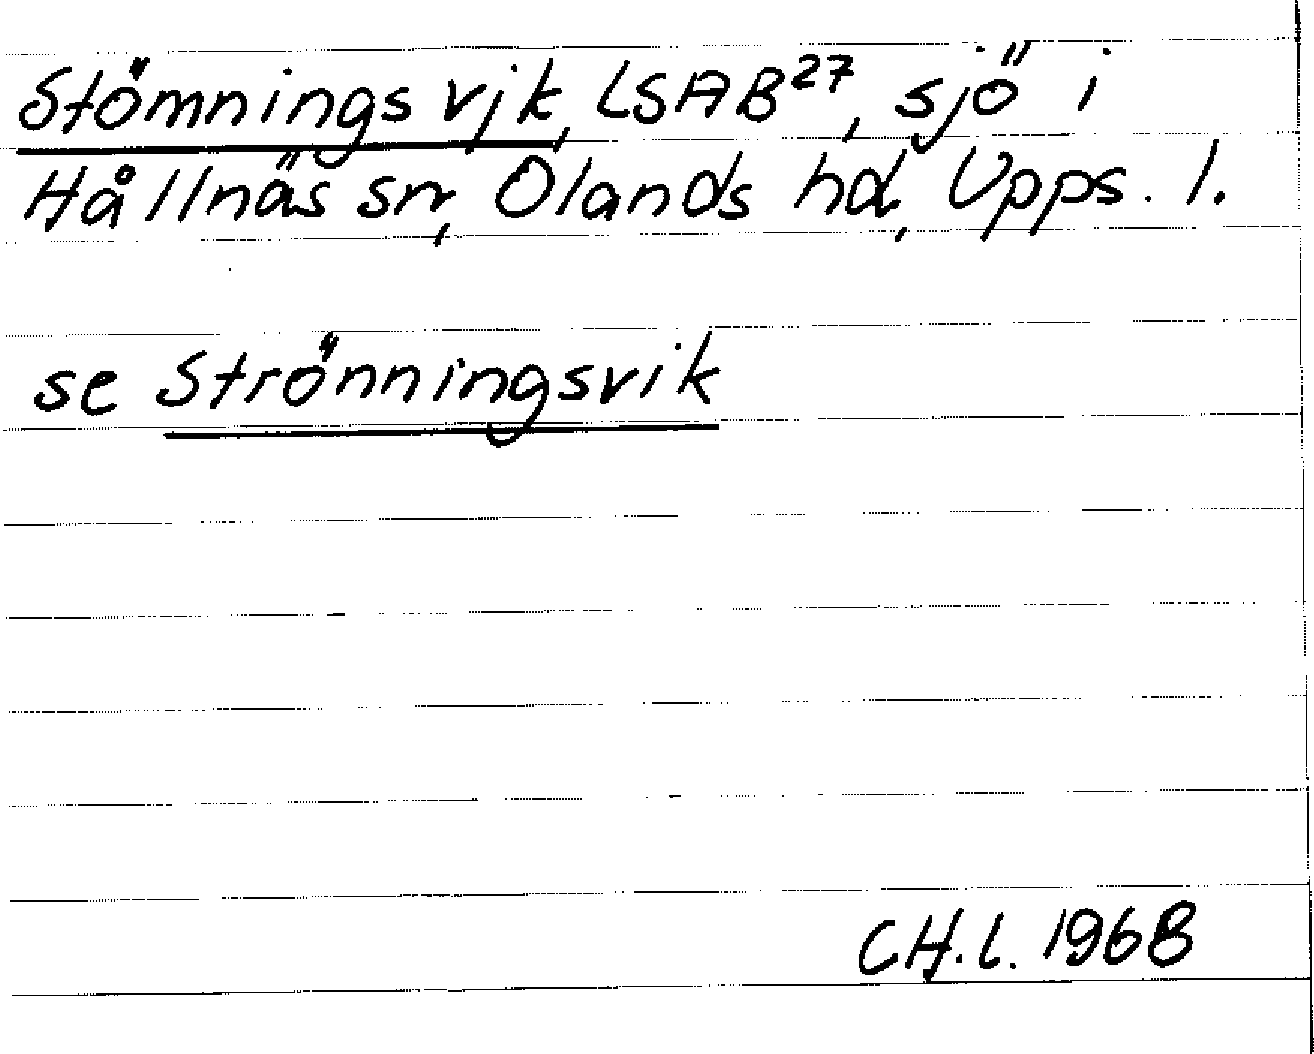 Stömnings vjk, LSAB27, sjö i
Hållnäs sn, Olands hd, Upps. l.
se Strönningsvik
CH.L. 1968